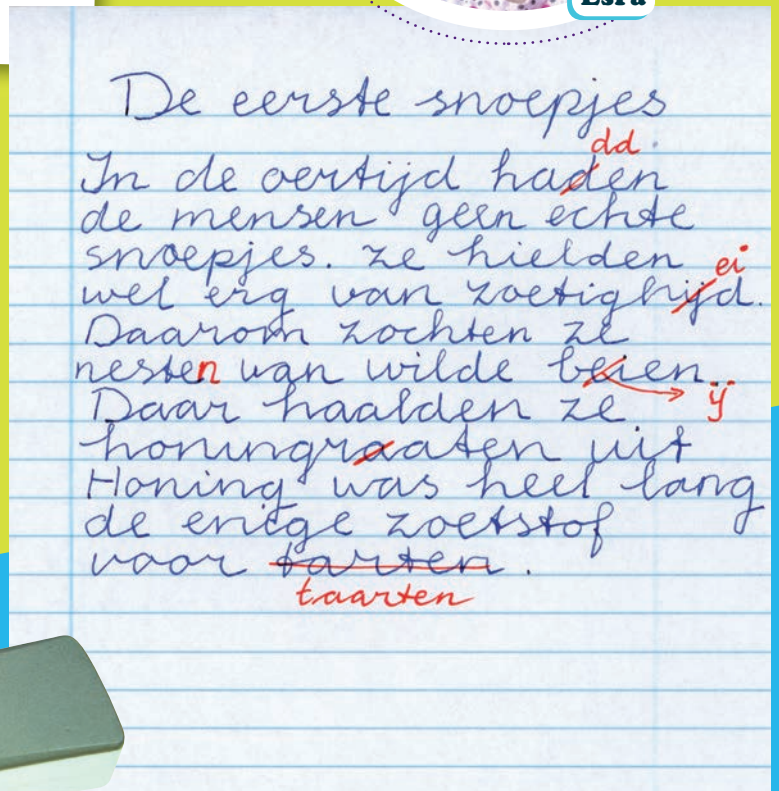 Esra
De eerste snoepjes
dd
In de oertijd haden
de mensen geen echte
snoepjes. ze hielden ei
wel erg van zoetighijd.
Daarom zochten ze
nesten van wilde beien.
ij
Daar haalden ze
honingraaten uit
Honing was heel lang
de enige zoetstof
voor tarten.
taarten